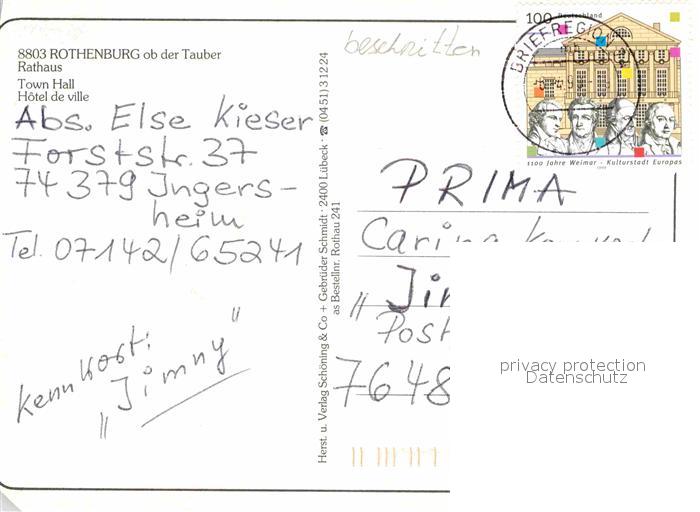 8803 ROTHENBURG ob der Tauber
Rathaus
Town Hall
Hôtel de ville
Abs. Else Kieser
Forststr. 37
74379 Ingers-
heim
Tel. 07142/65241
Kennwort:
"Jimny"
beschnitten
Herst. u. Verlag Schöning & Co + Gebrüder Schmidt · 2400 Lübeck · ☎ (0451) 3 12 24
as Bestellnr. Rothau 241
100 Deutschland
BRIEFREGION
1100 Jahre Weimar - Kulturstadt Europas
1999
PRIMA
Carina
"Jim
Post
7648
privacy protection
Datenschutz